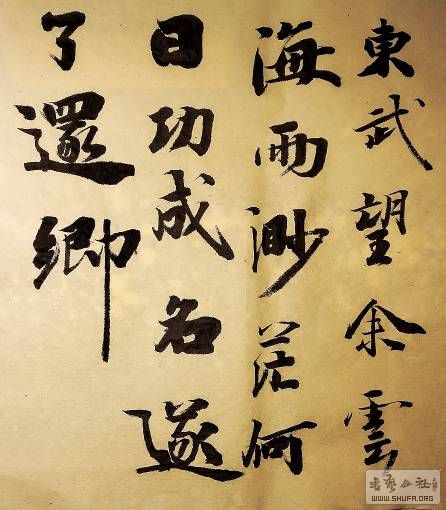 東武望余雲
海兩渺茫何
日功成名遂
了還鄉
WWW.SHUFA.ORG